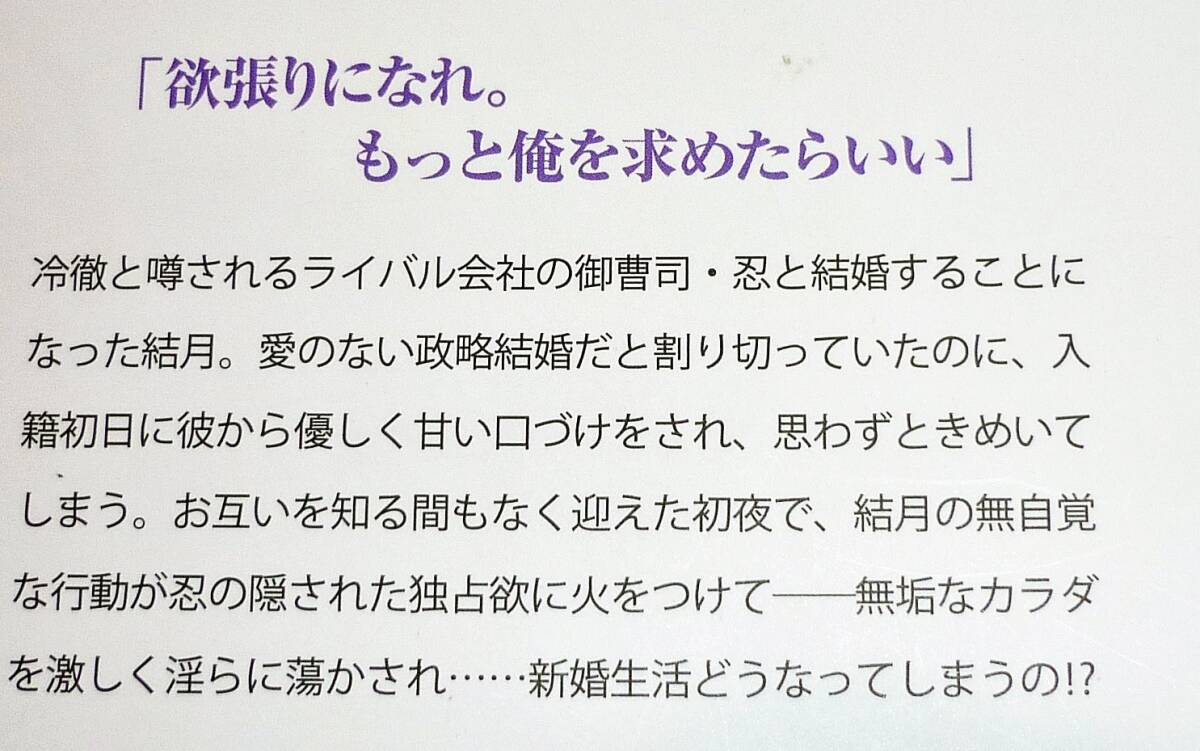 「欲張りになれ。
もっと俺を求めたらいい」
冷徹と噂されるライバル会社の御曹司・忍と結婚することに
なった結月。愛のない政略結婚だと割り切っていたのに、入
籍初日に彼から優しく甘い口づけをされ、思わずときめいて
しまう。お互いを知る間もなく迎えた初夜で、結月の無自覚
な行動が忍の隠された独占欲に火をつけて――無垢なカラダ
を激しく淫らに蕩かされ……新婚生活どうなってしまうの!?